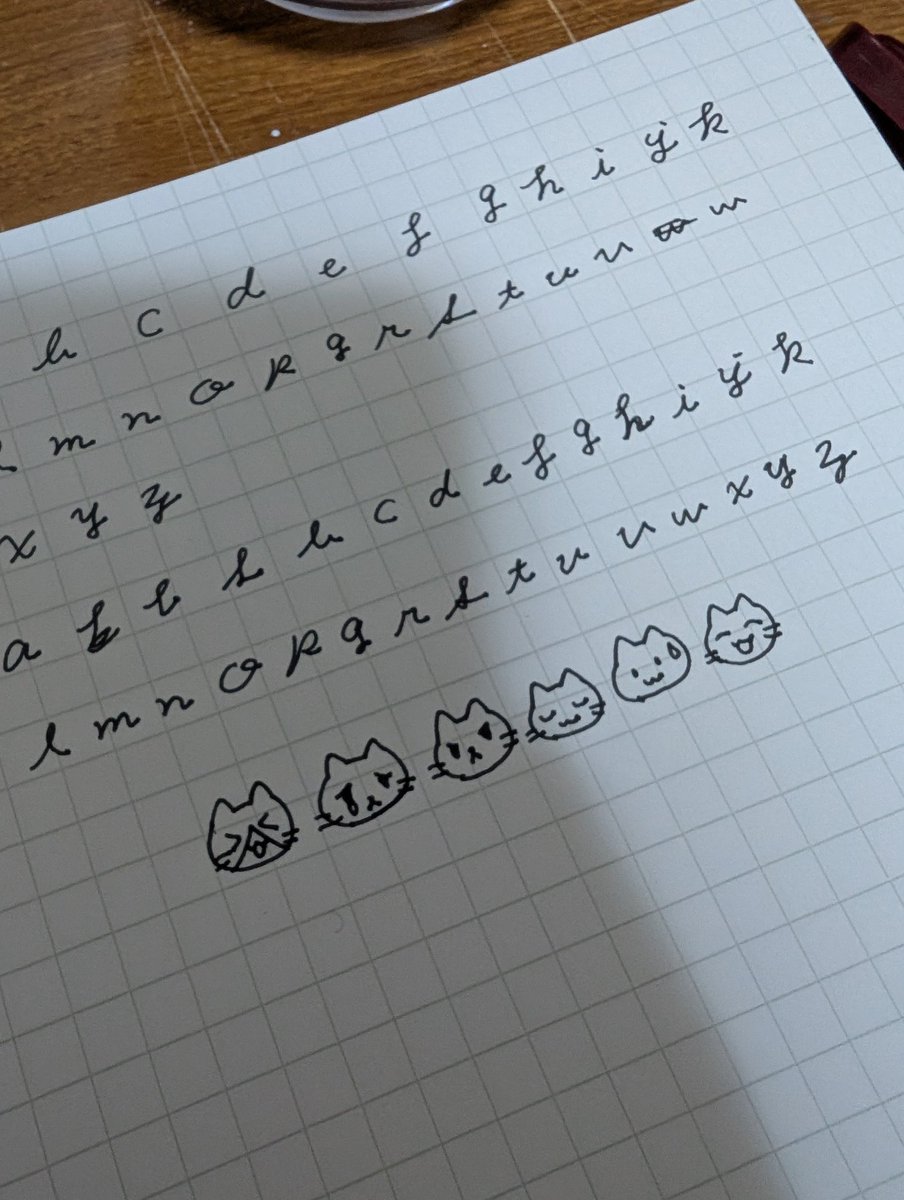 b c d e f g h i j k
l m n o p q r s t u v w
x y z
a b c d e f g h i j k
l m n o p q r s t u v w x y z